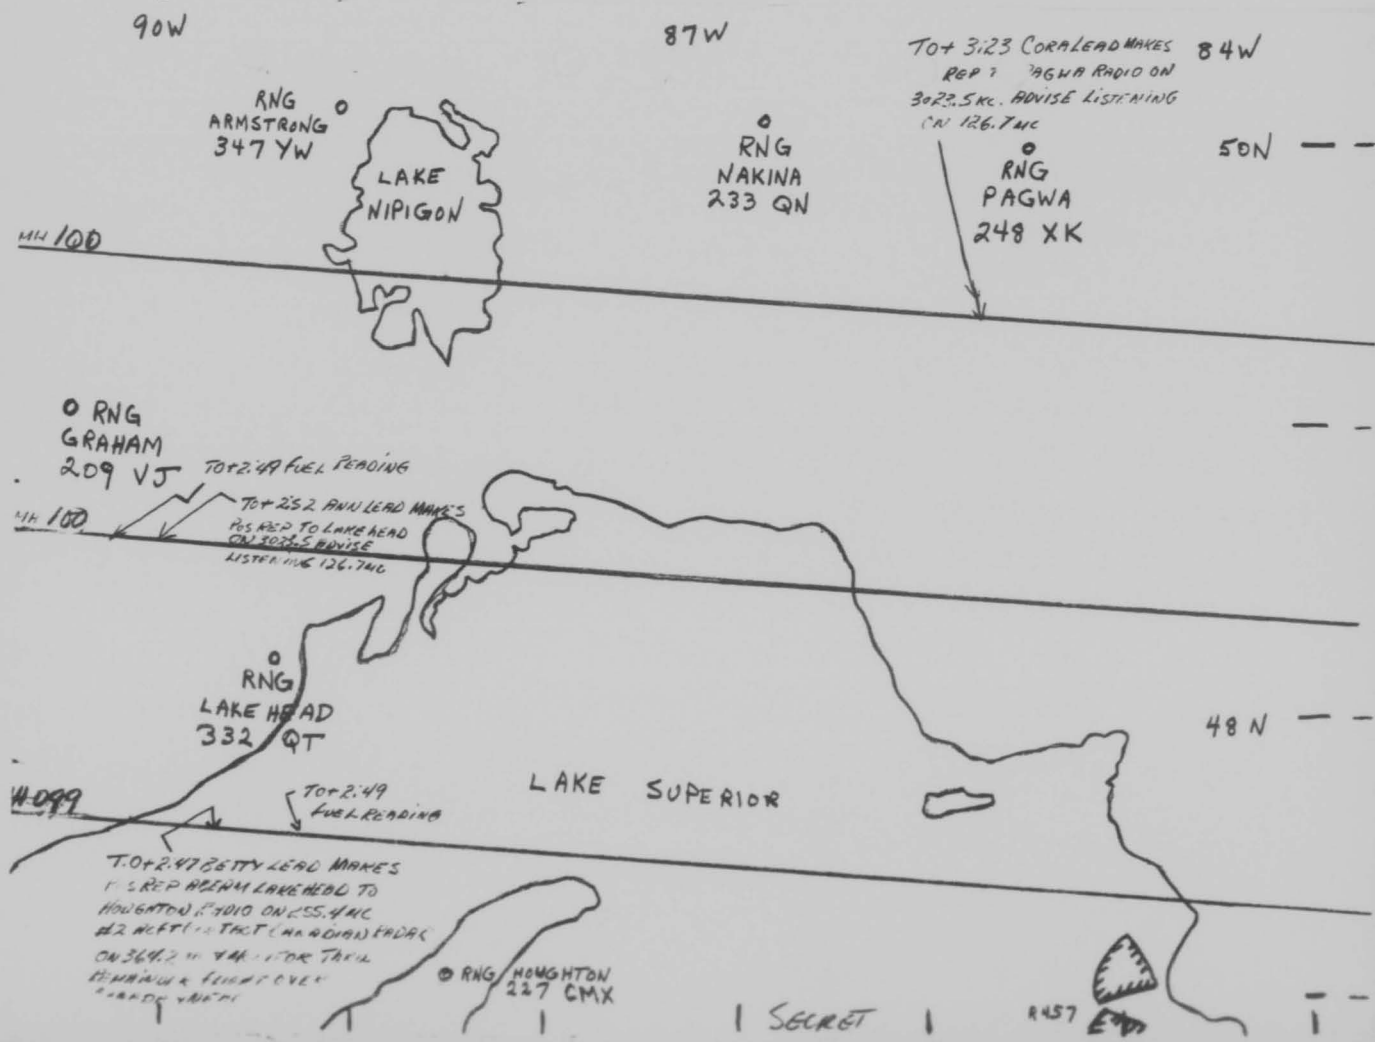 90W
87W
84W
TO+ 3:23 CORA LEAD MAKES
REP RADIO ON
3023.5 KC. ADVISE LISTENING
ON 126.7 MC
RNG
ARMSTRONG
347 YW
LAKE
NIPIGON
RNG
NAKINA
233 QN
RNG
PAGWA
248 XK
50N
MH 100
RNG
GRAHAM
209 VJ
TO+2:49 FUEL READING
TO+ 2:52 ANN LEAD MAKES
POS REP TO LAKEHEAD
ON 3023.5 ADVISE
LISTENING 126.7 MC
MH 100
RNG
LAKE HEAD
332 QT
48 N
LAKE SUPERIOR
H 099
TO+2:49
FUEL READING
TO+2:47 BETTY LEAD MAKES
REP ABEAM LAKEHEAD TO
HOUGHTON RADIO ON 255.4 MC
#2 CANADIAN RADAR
ON 364.2
FLIGHT OVER
RNG HOUGHTON
227 CMX
SECRET
R457